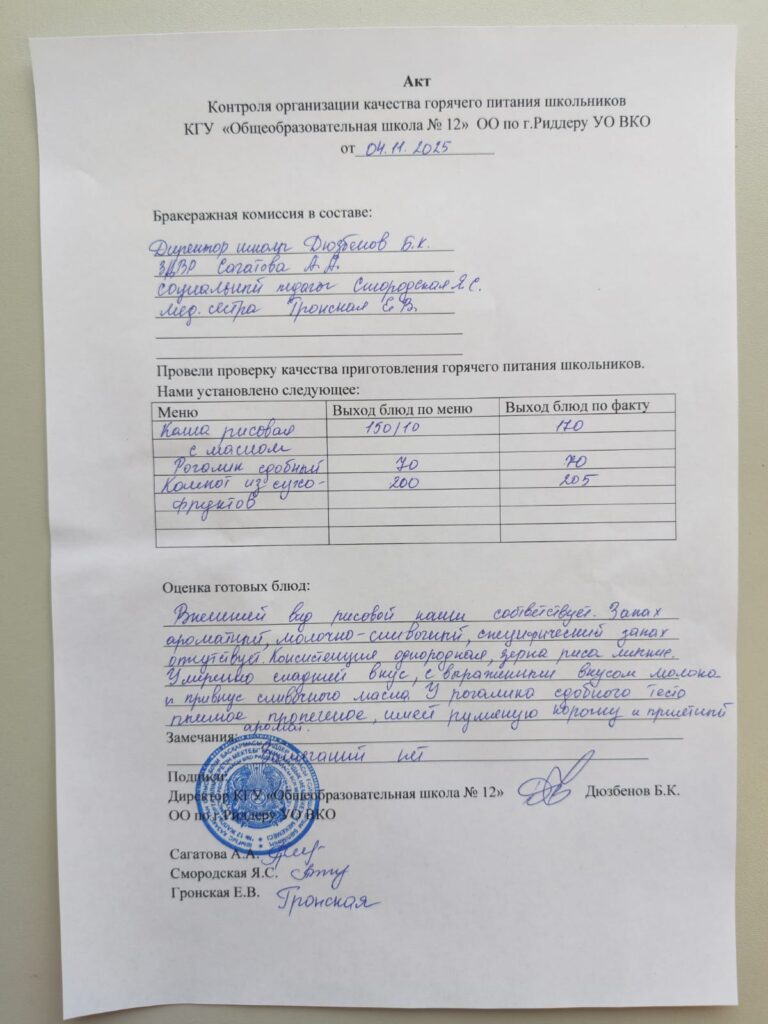 Акт
Контроля организации качества горячего питания школьников
КГУ «Общеобразовательная школа № 12» ОО по г.Риддеру УО ВКО
от 04.11.2025
Бракеражная комиссия в составе:
Директор школы Дюзбенов Б.К.
ЗДВР Сагатова А.А.
Социальный педагог Смородская Я.С.
Мед. сестра Гронская Е.В.
Провели проверку качества приготовления горячего питания школьников.
Нами установлено следующее:
Меню Выход блюд по меню Выход блюд по факту
Каша рисовая 150/10 170
с маслом
Рогалик сдобный 70 70
Компот из сухо- 200 205
фруктов
Оценка готовых блюд:
Внешний вид рисовой каши соответствует. Запах
ароматный, молочно-сливочный, специфический запах
отсутствует. Консистенция однородная, зерна риса мягкие.
Умеренно сладкий вкус, с выраженным вкусом молока
и привкус сливочного масла. У рогалика сдобного тесто
пышное пропеченое, имеет румяную корочку и приятный
аромат.
Замечания:
Замечаний нет
Подписи:
Директор КГУ «Общеобразовательная школа № 12» Дюзбенов Б.К.
ОО по г.Риддеру УО ВКО
Сагатова А.А.
Смородская Я.С.
Гронская Е.В. Гронская